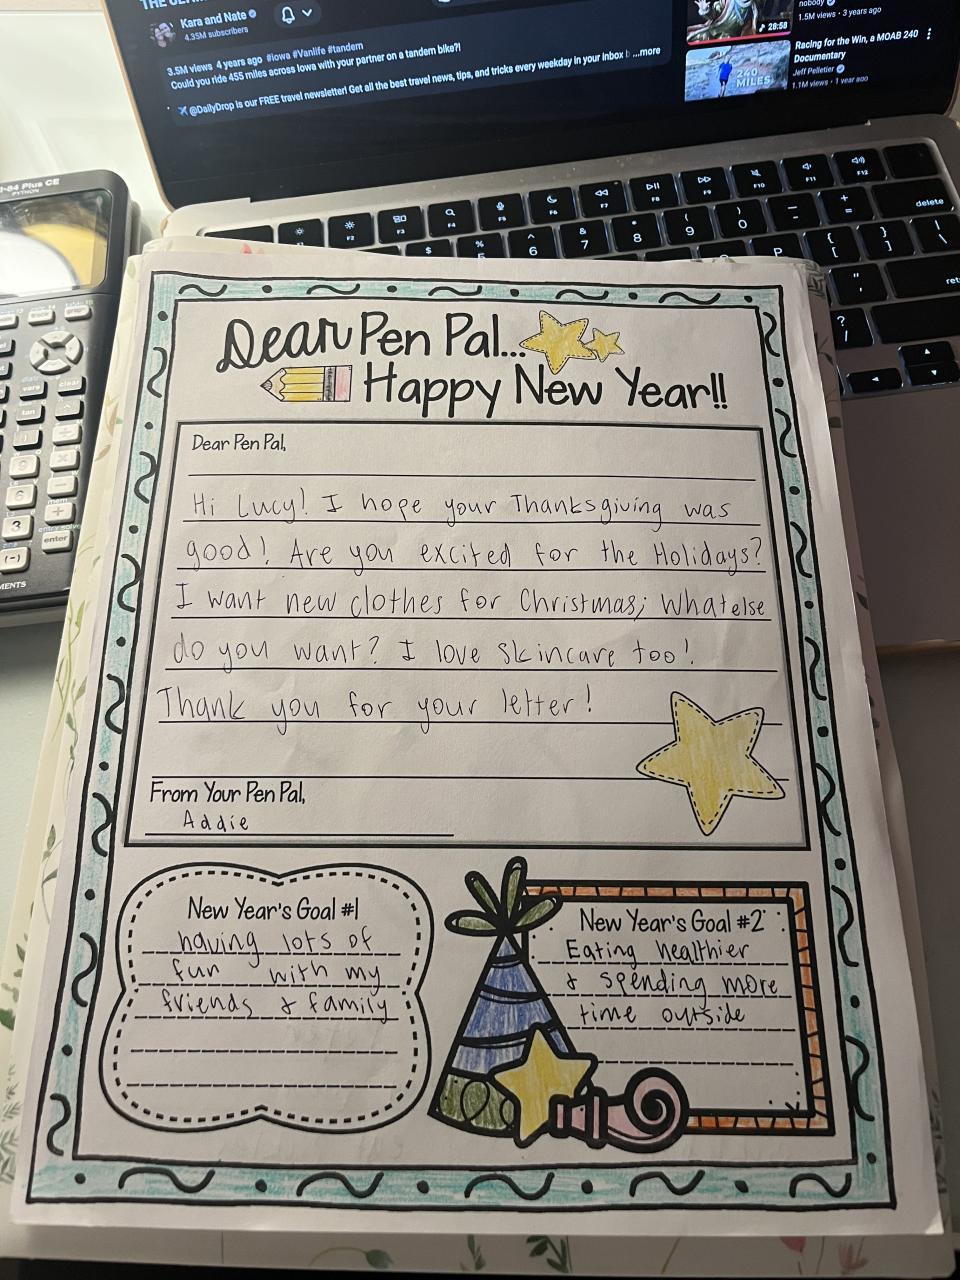 Kara and Nate
4.35M subscribers
3.5M views 4 years ago #iowa #Vanlife #tandem
Could you ride 455 miles across Iowa with your partner on a tandem bike?!
@DailyDrop is our FREE travel newsletter! Get all the best travel news, tips, and tricks every weekday in your inbox ...more
nobody
1.5M views • 3 years ago
28:58
Racing for the Win, a MOAB 240
Documentary
Jeff Pelletier
1.1M views • 1 year ago
240
MILES
84 Plus CE
PYTHON
F2
F3
F4
F5
F6
F7
F8
F9
F10
F11
F12
delete
$
%
^
6
&
7
*
8
(
9
)
0
-
+
=
P
{
[
}
]
|
\
"
'
?
/
clear
vars
tan
)
6
3
(-)
+
enter
Dear Pen Pal...
Happy New Year!!
Dear Pen Pal,
Hi Lucy! I hope your Thanksgiving was
good! Are you excited for the Holidays?
I want new clothes for Christmas; what else
do you want? I love skincare too!
Thank you for your letter!
From Your Pen Pal,
Addie
New Year's Goal #1
having lots of
fun with my
friends & family
New Year's Goal #2
Eating healthier
& spending more
time outside